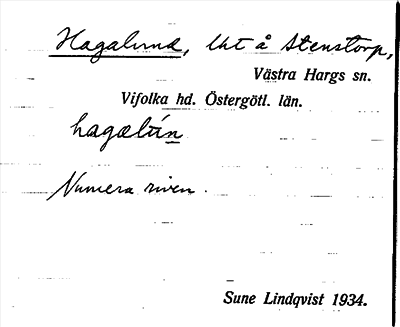 Hagalund, lht å Stenstorp,
Västra Hargs sn.
Vifolka hd. Östergötl. län.
hagalún
Numera riven.
Sune Lindqvist 1934.